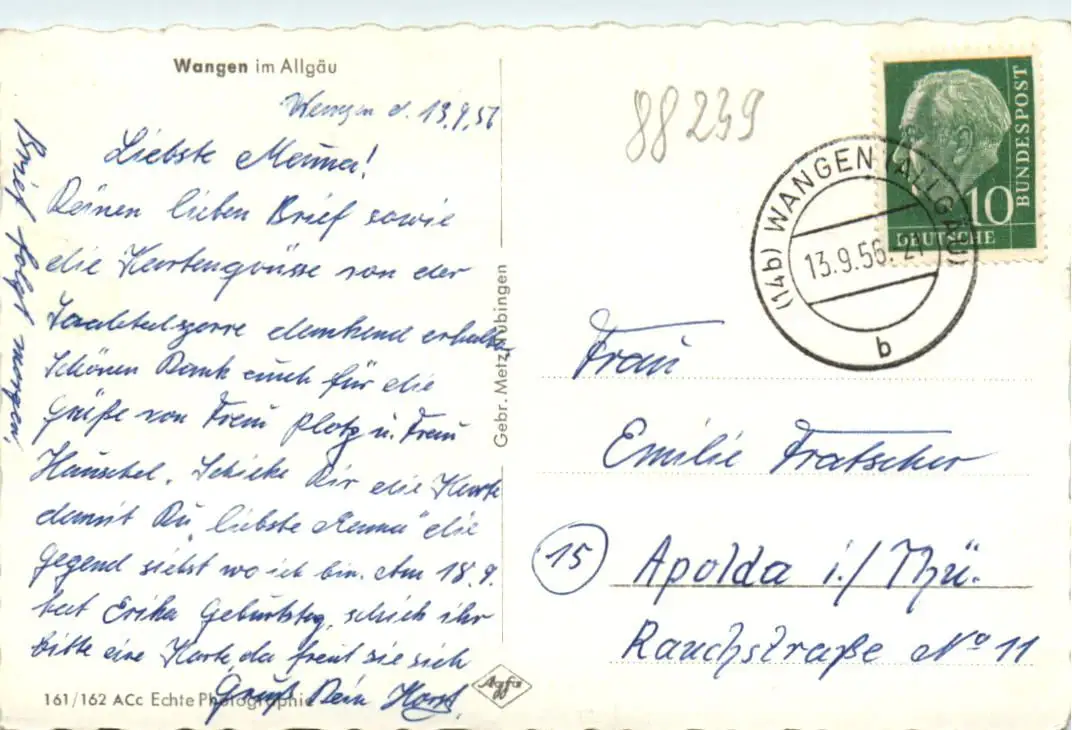 Wangen im Allgäu
Wangen d. 13.9.56
Liebste Mama!
Deinen lieben Brief sowie
die Kartengrüsse von der
dankend erhalten
Schönen Dank auch für die
Grüße von Frau Plotz u. Frau
Häuschel. Schicke Dir die Karte
damit Du "liebste Mama" die
Gegend siehst wo ich bin. Am 18.9.
hat Erika Geburtstag, schick ihr
bitte eine Karte, da freut sie sich
Gruß Dein Horst.
Brief folgt morgen!
161/162 ACc Echte Photographie
Gebr. Metz, Tübingen
Agfa
88239
DEUTSCHE
BUNDESPOST
10
(14b) WANGEN (ALLGÄU)
13.9.56.-21
b
Frau
Emilie Fratscher
15
Apolda i./Thü.
Rauchstraße No 11